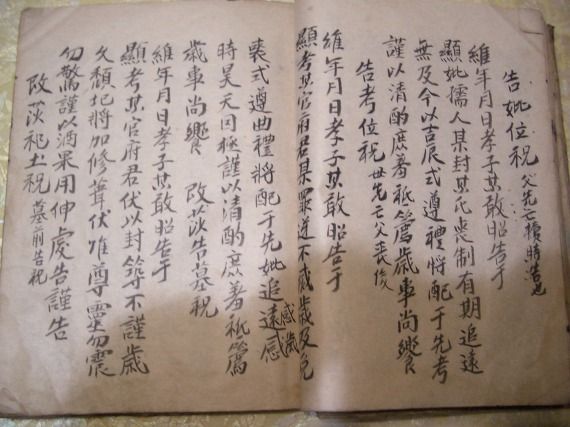 告妣位祝 父先亡禫時告也
維年月日孝子某敢昭告于
顯妣孺人某封某氏喪制有期追遠
無及今以吉辰式遵禮將配于先考
謹以清酌庶羞祗薦歲事尚饗
告考位祝 母先亡父喪後
維年月日孝子某敢昭告于
顯考某官府君某罪逆不滅歲及免
喪式遵典禮將配于先妣追遠感
感歲
時昊天罔極謹以清酌庶羞祗薦
歲事尚饗 改莎告墓祝
維年月日孝子某敢昭告于
顯考某官府君伏以封築不謹歲
久頹圮將加修葺伏惟尊靈勿震
勿驚謹以酒果用伸虔告謹告
改莎祀土祝 墓前告祝